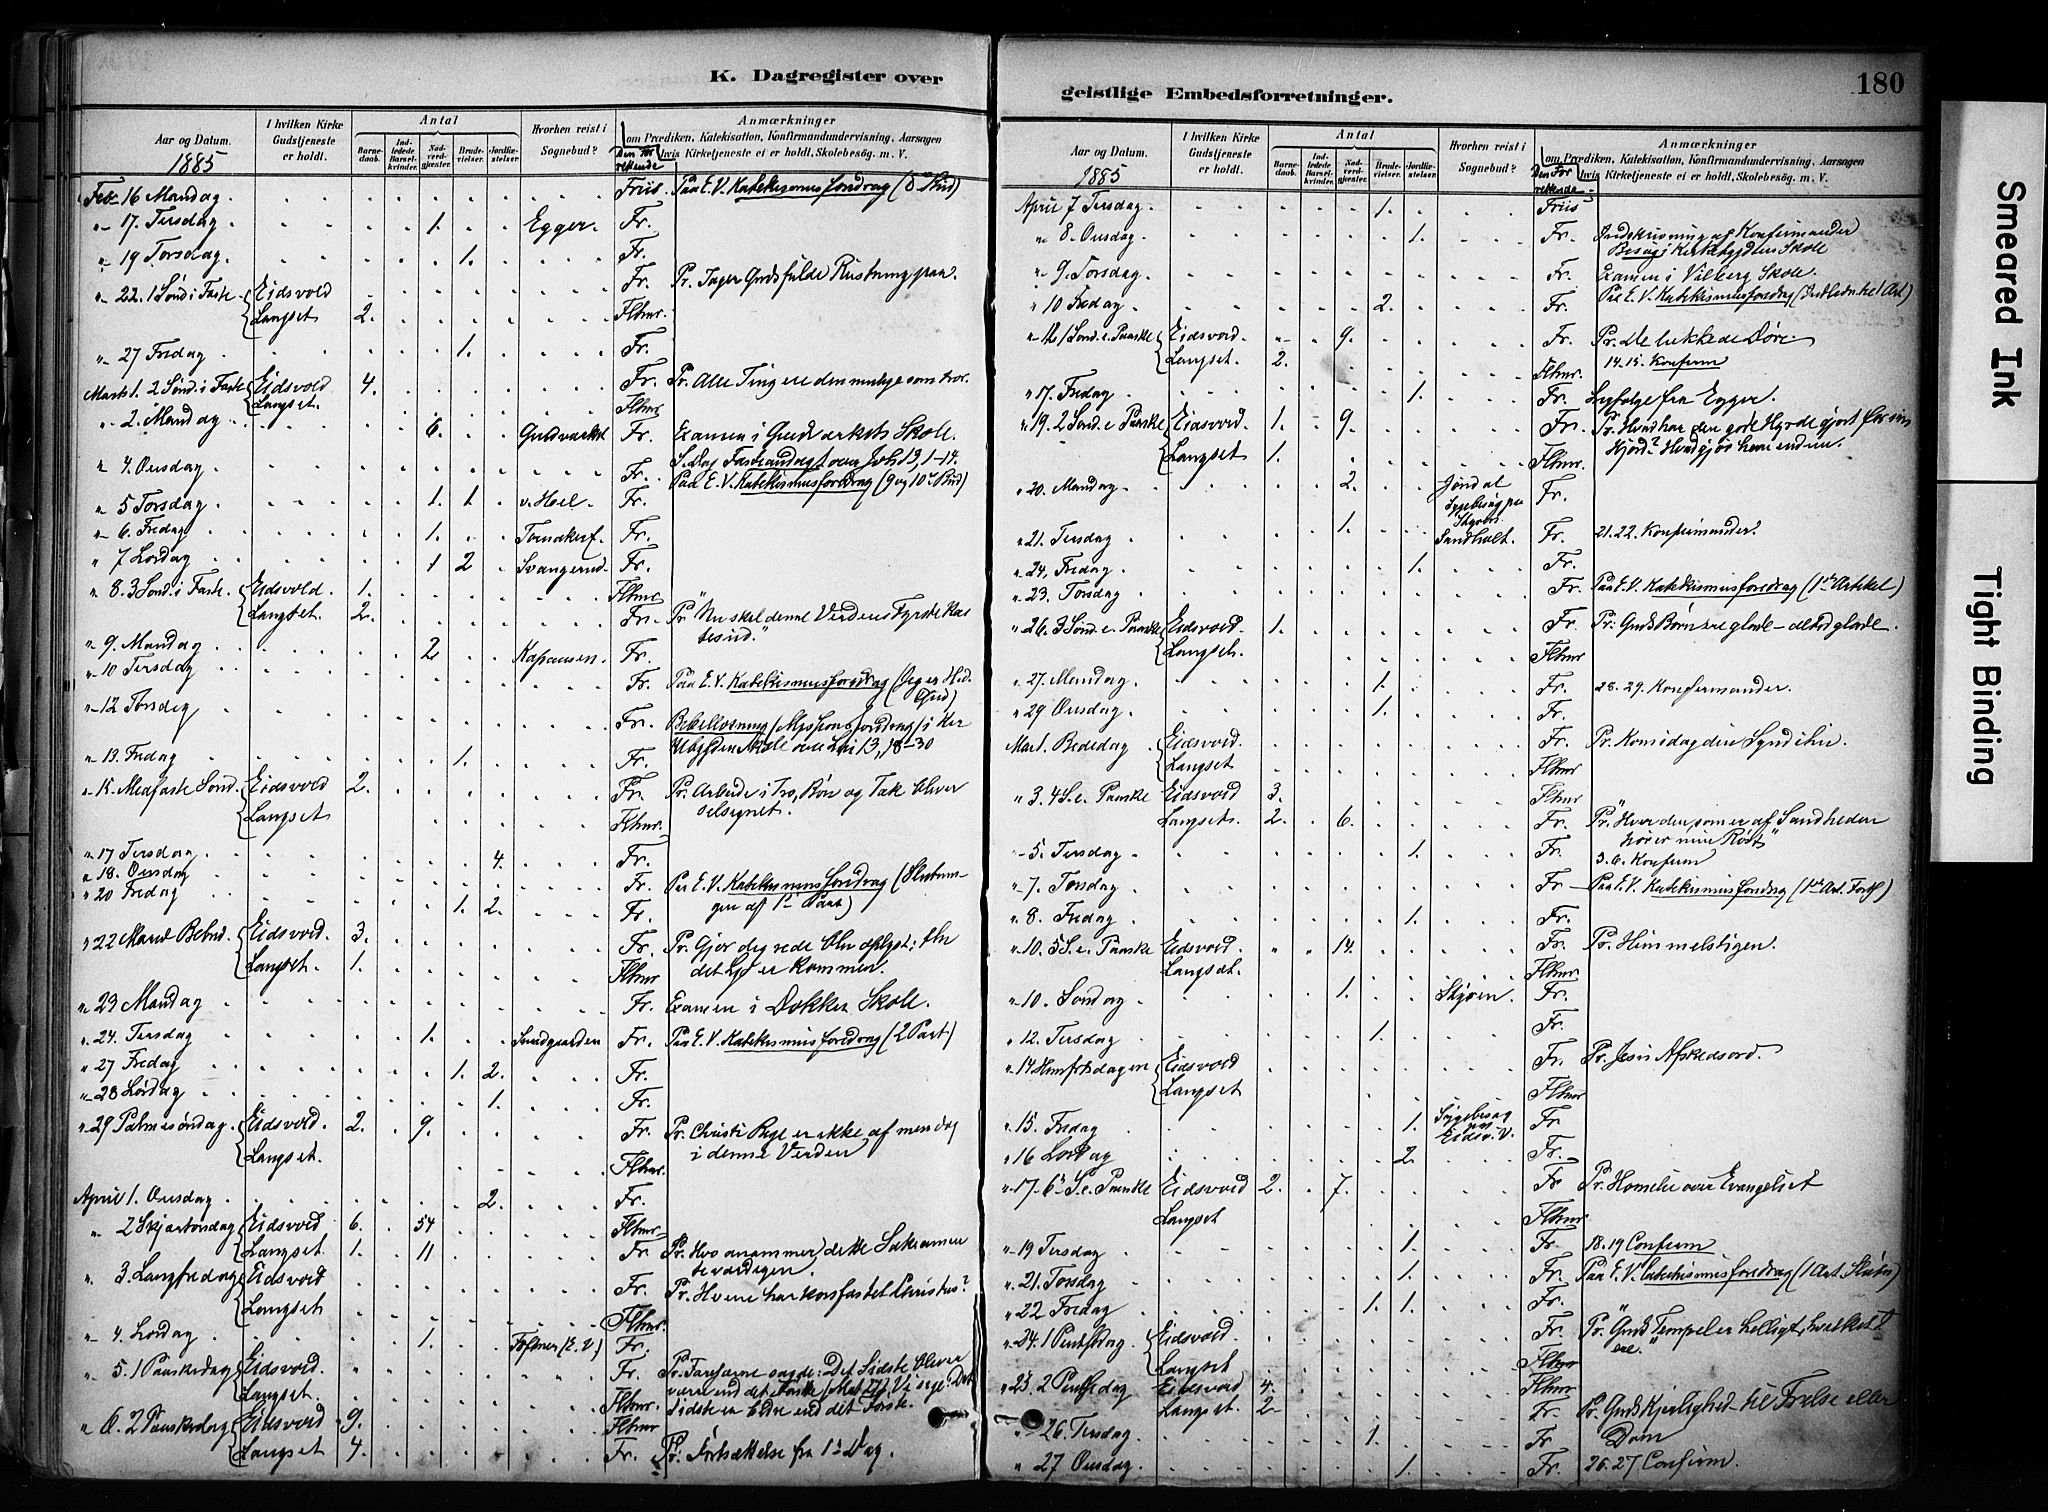 K. Dagregister over
geistlige Embedsforretninger.
180
Aar og Datum.
1885
I hvilken Kirke Gudstjeneste er holdt.
Antal
Barnedaab.
Indledede Barselkvinder.
Nadverdgjæster.
Brudevielser.
Jordfæstelser.
Hvorhen reist i Sognebud?
Den Forrettende
Anmærkninger
om Prædiken, Katekisation, Konfirmandundervisning, Aarsagen
hvis Kirketjeneste ei er holdt, Skolebesög. m. V.
Feb 16 Mandag Friis Paa E. V. Katekismusforedrag (8 Bud)
" 17. Tirsdag 1. Egger. Fr.
" 19 Torsdag 1. Fr.
" 22. 1 Sønd i Faste Eidsvold Fr. Pr. Tager Guds fulde Rustning paa.
Langset 2. Flhmr.
" 27 Fredag 1. Fr.
Marts 1. 2 Sønd. i Faste Eidsvold 4. Fr. Pr. Alle Ting ere den mulige som tror.
Langset. Flhmr
" 2. Mandag 6. Guldværket Fr. Examen i Guldværkets Skole.
S. Dag Fasteandagt over Joh 13, 1-14.
" 4. Onsdag Fr. Paa E. V. Katekismusforedrag (9 og 10 Bud)
" 5 Torsdag 1. 1 v. Hoel Fr.
" 6. Fredag 1. Fr.
" 7 Lørdag 1 2 Svangerud Fr.
" 8. 3 Sønd. i Faste Eidsvold. 1. Flhmr
Langset. 2. Fr. Pr "Nu skal denne Verdens Fyrste kastes ud."
" 9. Mandag 2 Fr.
" 10 Tersdag Fr. Paa E. V. Katekismusforedrag (Jeg er H. d. Gud)
" 12 Torsdag Fr. Bibellæsning
13, 18-30
" 13. Fredag 1. Fr.
" 15. Midfaste Sønd. Eidsvold 2. Fr. Pr. Arbeide i Tro, Bøn og Tak bliver velsignet.
Langset Flhmr.
" 17 Tersdag 4. Fr.
" 18. Onsdag Fr. Paa E. V. Katekismusforedrag (Slutningen af 1 Part)
" 20 Fredag 1. 2. Fr.
" 22 Mariæ Bebud. Eidsvold. 3. Fr. Pr. Gjør dig rede bliv oplyst; thi det Lys er kommen.
Langset. 1. Flhmr
" 23 Mandag Fr. Examen i Dokken Skole.
" 24. Tersdag 1. Sundgaarden Fr. Paa E. V. Katekismusforedrag (2 Part)
" 27 Fredag 1. 2. Fr.
" 28 Lørdag 1. Fr.
" 29 Palmesøndag Eidsvold. 2. 9. Fr. Pr. Christi Rige er ikke af men dog i denne Verden
Langset. Flhmr.
April 1. Onsdag 2. Fr.
" 2 Skjærtorsdag Eidsvold 6. 54 Flhmr.
Langset. 1. 11 Fr Pr. Hvo anammer dette Sakramente værdigen.
" 3. Langfredag Eidsvold Fr. Pr. Hvem har korsfæstet Christus?
Langset Flhmr.
" 4. Lørdag 1. Fr.
" 5. 1 Paaskedag Eidsvold. Fr. Pr. Farisæerne sagde: Det Sidste bliver værre end det Første (Mat 27). Vi sige: Det Sidste er bedre end det Første.
Langset. Flhmr.
" 6. 2 Paaskedag Eidsvold 9. Flhmr
Langset 4. Fr. Pr. Fortsættelse fra 1 Dag.
Aar og Datum.
1885
I hvilken Kirke Gudstjeneste er holdt.
Antal
Barnedaab.
Indledede Barselkvinder.
Nadverdgjæster.
Brudevielser.
Jordfæstelser.
Hvorhen reist i Sognebud?
Den Forrettende
Anmærkninger
om Prædiken, Katekisation, Konfirmandundervisning, Aarsagen
hvis Kirketjeneste ei er holdt, Skolebesög. m. V.
April 7 Tersdag 1. Friis
" 8. Onsdag 1. Fr. Indskrivning af Konfirmander
Besøg i Kirkebygdens Skole
" 9. Torsdag Fr. Examen i Vilberg Skole.
" 10 Fredag 2. Fr. Paa E. V. Katekismusforedrag (Indledn. til 1 Art)
" 12 1 Sønd. e. Paaske Eidsvold. 9. Fr. Pr. De lukkede Døre
Langset 2. Flhmr. 14. 15. Konfirm
" 17. Fredag 1. Fr. Ligfølge fra Egger.
" 19. 2 Sønd. e. Paaske Eidsvold 1. 9. Fr. Pr. Hvad har den gode Hyrde gjort for sin Hjord? Hvad gjør han endnu.
Langset 1. Flhmr.
" 20. Mandag 2. Jøndal Fr.
Sygebesøg paa
" 21. Tersdag 1. Sandholt. Fr. 21. 22. Konfirmander.
" 24, Fredag 1. Fr.
" 23. Torsdag Fr. Paa E. V. Katekismusforedrag (1ste Artikel)
" 26. 3 Sønd. e. Paaske Eidsvold. 1. Fr. Pr. Guds Børn ere glade
Langset. Flhmr
" 27. Mandag 1. Fr. 28. 29. Konfirmander.
" 29 Onsdag 1. Fr.
Mai 1. Bededag Eidsvold. Fr. Pr. Kom idag din Synd ihu
Langset. Flhmr
" 3. 4 S. e. Paaske Eidsvold 3. Flhmr
Langset. 2. 6. Fr. Pr. "Hver den, som er af Sandheden hører min Røst"
" 5. Tersdag 1. Fr. 5. 6. Konfirm
" 7. Torsdag Fr. Paa E. V. Katekismusforedrag (1ste Art. Forts)
" 8. Fredag 1. Fr.
" 10. 5 S. e. Paaske Eidsvold 14. Fr. Pr. Himmelstigen.
Langset. Flhmr
" 10. Søndag 1. Fr.
" 12. Tersdag 1. Fr.
" 14 Himfartsdagen Eidsvold Fr. Pr. Jesu Afskedsord.
Langset Flhmr
" 15. Fredag 1. Sygebesøg paa Eidsv. V. Fr
" 16 Lørdag 2. Fr.
" 17. 6 S. e. Paaske Eidsvold 2. 7. Fr Pr. Homelie over Evangeliet
Langset Flhmr
" 19 Tersdag 1. Fr. 18. 19 Confirm
" 21. Torsdag 1. Fr. Paa E. V. Catekismusforedrag (1 Art. Slutn)
" 22 Fredag 1. 1. Fr.
" 24. 1 Pintsedag Eidsvold. Fr. Pr. "Guds Tempel er helligt, hvilket I ere."
Langset Flhmr
" 25. 2 Pintsedag Eidsvold 4. Flhmr
Langset 2. Fr. Pr. Guds Kjærlighed til Frelse eller Dom
" 26. Tersdag 1. Fr
" 27 Onsdag 1. Fr. 26. 27 Confirm.
Smeared Ink
Tight Binding